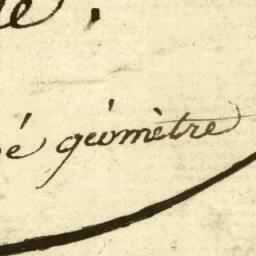 é géomètre